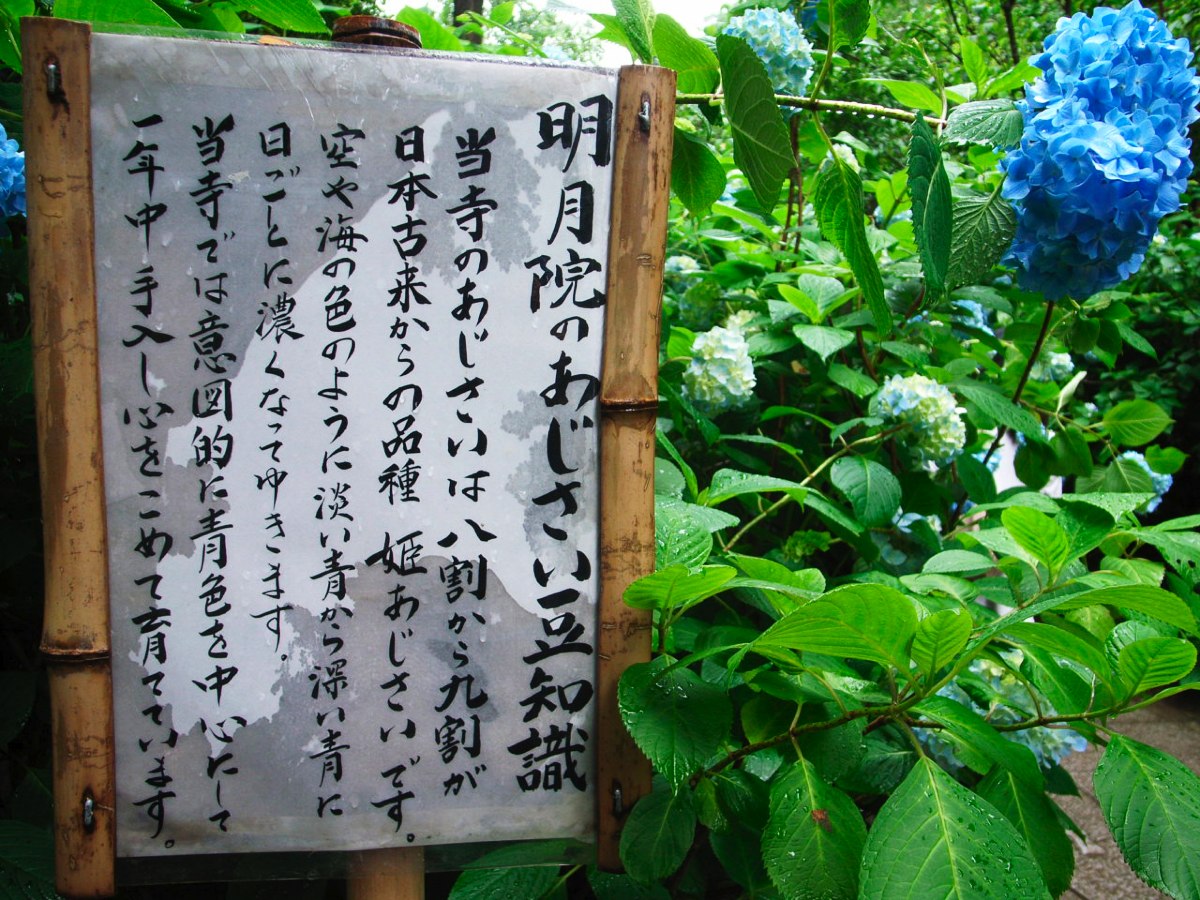 明月院のあじさい豆知識
当寺のあじさいは八割から九割が
日本古来からの品種 姫あじさいです。
空や海の色のように淡い青から深い青に
日ごとに濃くなってゆきます.
当寺では意図的に青色を中心にして
一年中手入し心をこめて育てています。